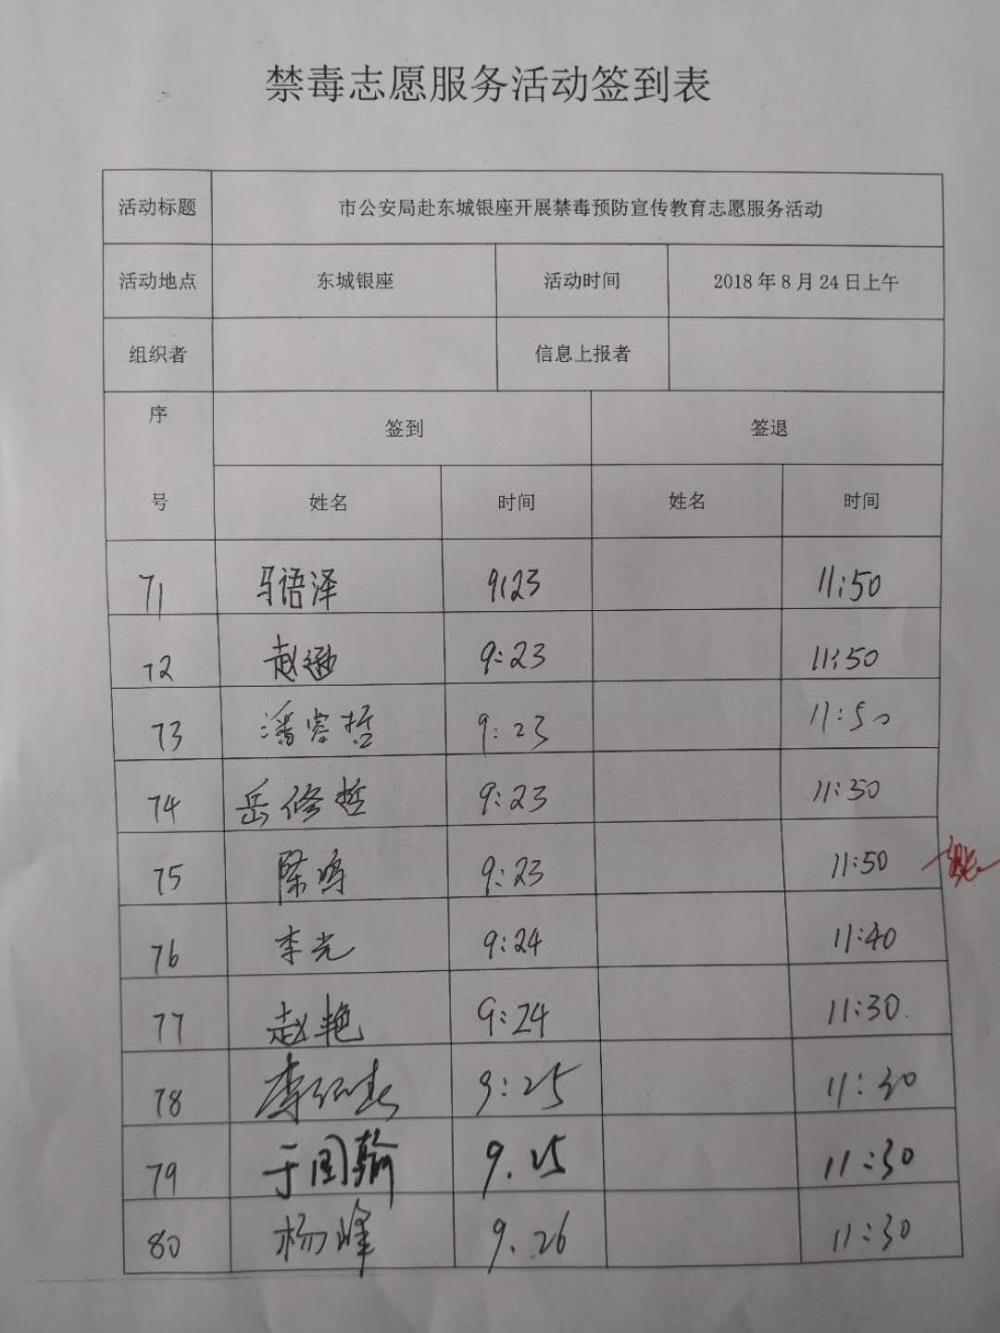 禁毒志愿服务活动签到表
活动标题 市公安局赴东城银座开展禁毒预防宣传教育志愿服务活动
活动地点 东城银座 活动时间 2018年8月24日上午
组织者 信息上报者
序号 签到 签退
姓名 时间 姓名 时间
71 马语泽 9:23 11:50
72 赵逊 9:23 11:50
73 潘容哲 9:23 11:50
74 岳修哲 9:23 11:30
75 9:23 11:50
76 李光 9:24 11:40
77 赵艳 9:24 11:30.
78 9:25 11:30
79 于国翰 9.25 11:30
80 杨峰 9.26 11:30